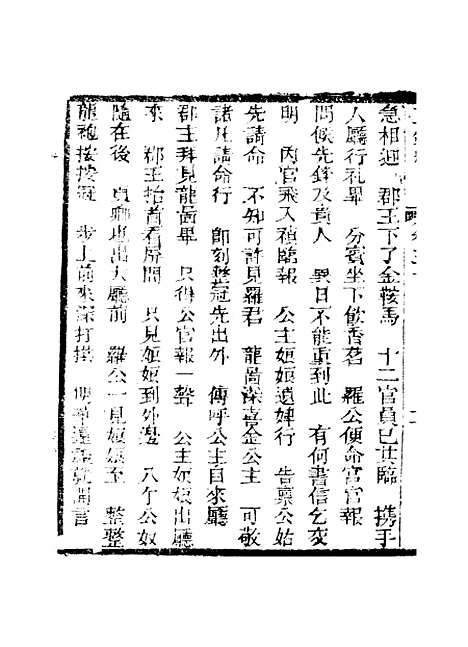 急相迎 郡王下了金鞍馬 十二官員已共臨 携手
人廳行礼畢 分賓坐下飲香茗 羅公便命宮官報
問候先鋒及貴人 異日不能重到此 有何書信乞交
明 內官飛入禎臨報 公主娘娘遺婢行 告稟公姑
先請命 不知可許見羅君 龍啚深喜金公主 可敬
諸凡請命行 即刻整冠先出外 傳呼公主自來廳
郡主拜見龍啚畢 只得公官報一聲 公主娘娘出廳
來 郡王抬首看房間 只見娘娘到外邊 八个公奴
隨在後 貞卿也出大廳前 羅公一見娘娘至 整整
龍袍按按冠 步上前來深打拱